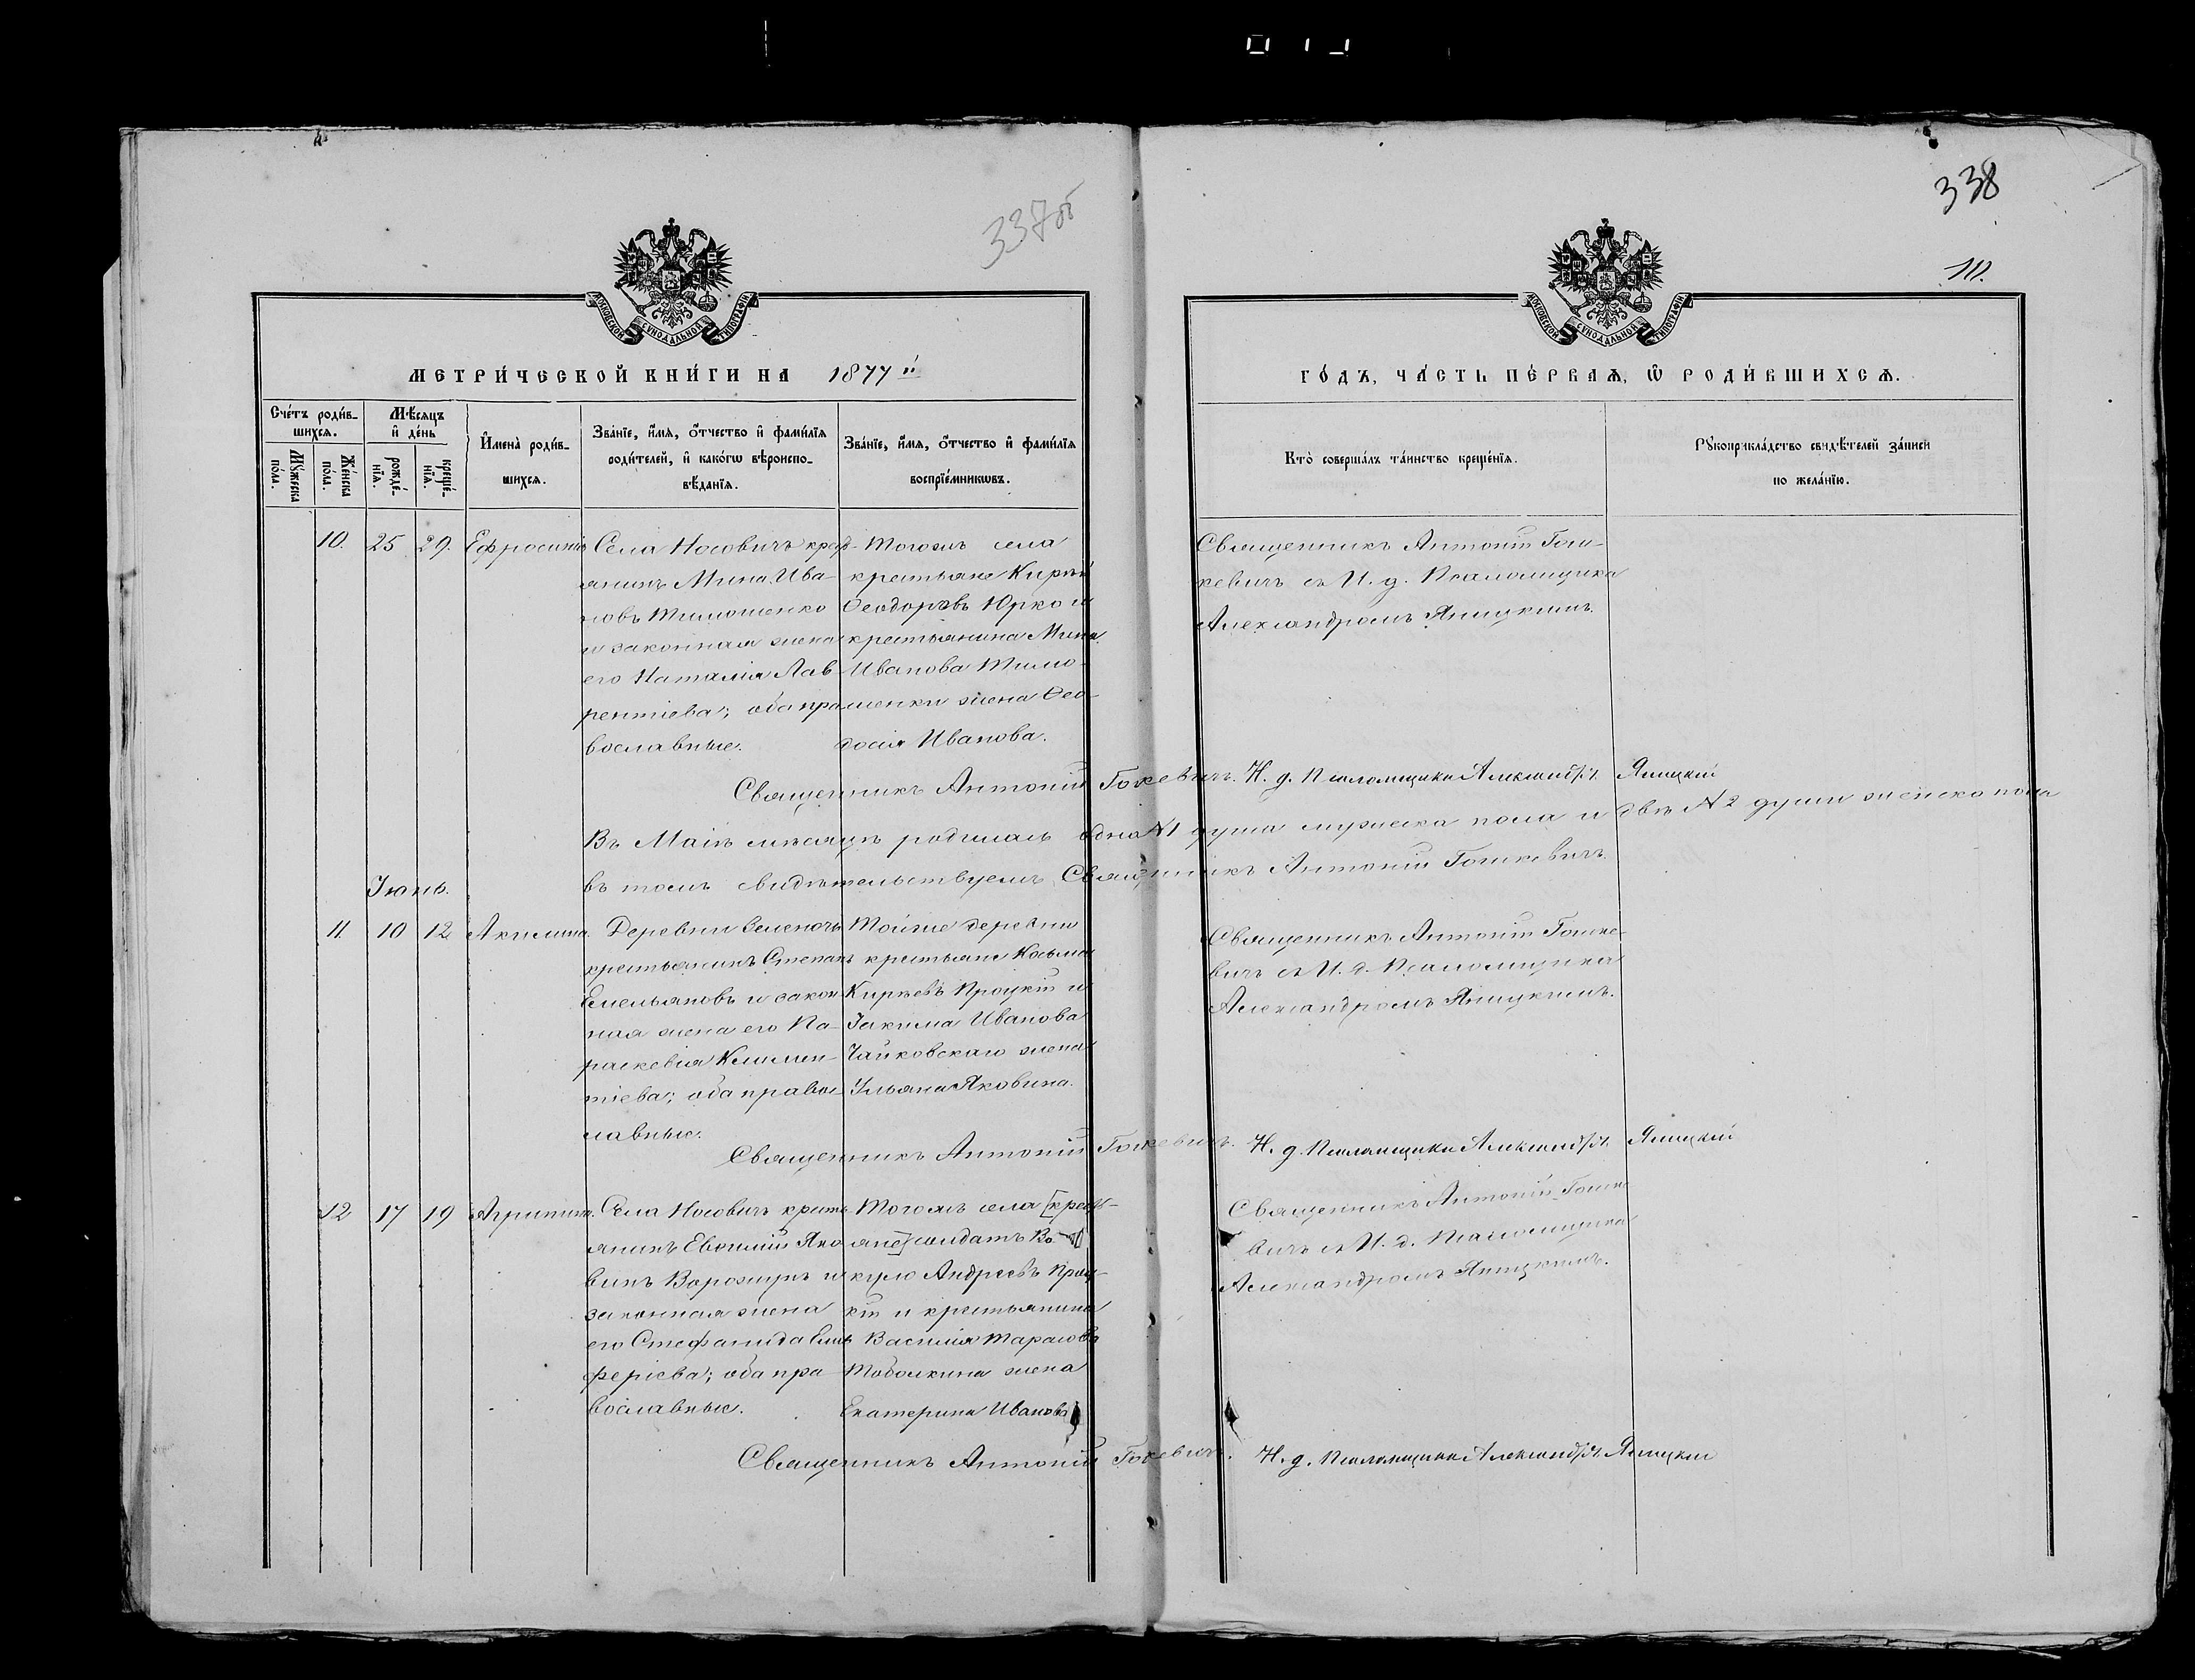 337об
338
111.
МОСКОВСКОЙ СУНОДАЛЬНОЙ ТИПОГРАФІИ
МОСКОВСКОЙ СУНОДАЛЬНОЙ ТИПОГРАФІИ
МЕТРИ́ЧЕСКОЙ КНИ́ГИ НА 1877й
ГО́ДЪ, ЧА́СТЬ ПЕ́РВАѦ, Ѿ РОДИ́ВШИХСѦ.
Сче́тъ роди́в-
шихсѧ.
Мꙋ́жеска
по́ла.
Же́нска
по́ла.
Мѣ́сяцъ
и҆ де́нь
рожде́-
нїѧ.
креще́-
нїѧ.
И҆мена̀ роди́в-
шихсѧ.
Зва́нїе, и҆́мѧ, ѻ҆́тчество и҆ фами́лїѧ
роди́телей, и҆ како́гѡ вѣроиспо-
вѣ́данїѧ.
Зва́нїе, и҆́мѧ, ѻ҆́тчество и҆ фами́лїѧ
воспрїе́мникѡвъ.
Кто̀ соверша́лъ та́инство креще́нїѧ.
Рꙋкоприкла́дство свидѣ́телей за́писи
по жела́нїю.
10. 25 29. Ефросинія
Села Носовичъ кресть
янинъ Мина Ива-
новъ Тимошенко
и законная жена
его Наталія Лав-
рентіева; оба пра-
вославные.
Тогожъ села
крестьяне Кирѣй
Ѳеодоровъ Юрко и
крестьянина Мины
Иванова Тимо-
шенки жена Ѳео-
досія Иванова.
Священникъ Антоній Гош-
кевичъ съ И. д. Псаломщика
Александромъ Яницкимъ.
Священникъ Антоній Гошкевичъ. И. д. Псаломщика Александръ Яницкій
Въ Маіѣ мѣсяцѣ родилась одна №1 душа мужеска пола и двѣ №2 души женска пола
въ томъ свидѣтельствуемъ Священникъ Антоній Гошкевичъ.
Іюнь.
11. 10 12 Акилина.
Деревни
крестьянинъ Степанъ
Емельяновъ и закон-
ная жена его Па-
раскевія Климен-
тіева; оба правос-
лавные.
Тойже деревни
крестьяне Косьма
Кирѣевъ Процкій и
Іакима Иванова
Чайковскаго жена
Ульяна Яковина.
Священникъ Антоній Гошке-
вичъ съ И. д. Псаломщика
Александромъ Яницкимъ.
Священникъ Антоній Гошкевичъ. И. д. Псаломщика Александръ Яницкій
12 17 19 Агрипина.
Села Носовичъ кресть-
янинъ Евѳимій Яко-
винъ Ворожунъ и
законная жена
его Стефанида Елев-
феріева; оба пра-
вославные.
Тогожъ села [кресть-
яне] солдатъ Во-
куло Андреевъ Проц-
кій и крестьянина
Василія Тарасова
Тоболкина жена
Екатерина Иванова
Священникъ Антоній Гошке-
вичъ съ И. д. Псаломщика
Александромъ Яницкимъ.
Священникъ Антоній Гошкевичъ. И. д. Псаломщика Александръ Яницкій